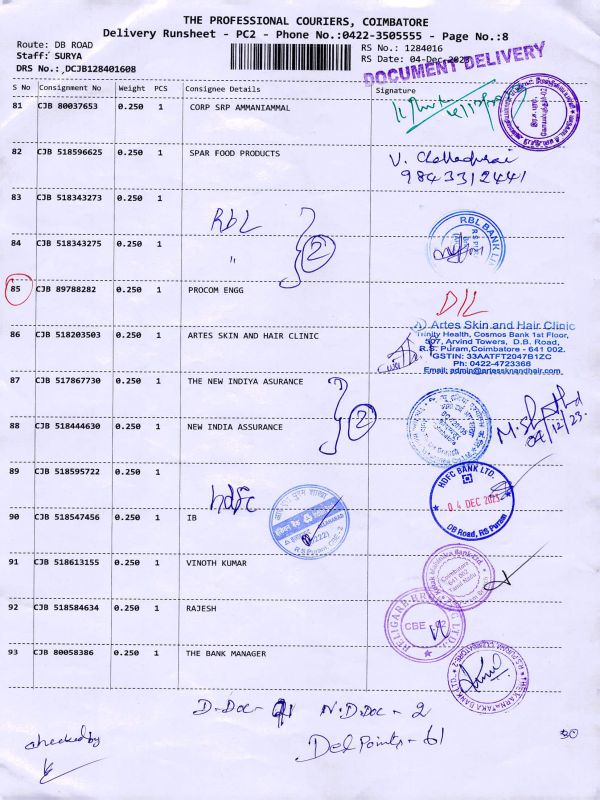 THE PROFESSIONAL COURIERS, COIMBATORE
Delivery Runsheet - PC2 - Phone No.:0422-3505555 - Page No.:8
Route: DB ROAD
RS No.: 1284016
Staff: SURYA
RS Date: 04-Dec-2023
DRS No.: DCJB128401608
DOCUMENT DELIVERY
S No Consignment No Weight PCS Consignee Details Signature
81 CJB 80037653 0.250 1 CORP SRP AMMANIAMMAL
82 CJB 518596625 0.250 1 SPAR FOOD PRODUCTS
9843312441
83 CJB 518343273 0.250 1
RBL
RBL BANK
84 CJB 518343275 0.250 1 "
2
85 CJB 89788282 0.250 1 PROCOM ENGG
D/L
86 CJB 518203503 0.250 1 ARTES SKIN AND HAIR CLINIC
Artes Skin and Hair Clinic
Trinity Health, Cosmos Bank 1st Floor,
507, Arvind Towers, D.B. Road,
R.S. Puram, Coimbatore - 641 002.
GSTIN: 33AATFT2047B1ZC
Ph: 0422-4723366
Email: admin@artesskinandhair.com
87 CJB 517867730 0.250 1 THE NEW INDIYA ASURANCE
2
04/12/23
88 CJB 518444630 0.250 1 NEW INDIA ASSURANCE
89 CJB 518595722 0.250 1
hdfc
HDFC BANK LTD.
04 DEC 2023
DB Road, RS Puram
90 CJB 518547456 0.250 1 IB
R S Puram, CBE-2
91 CJB 518613155 0.250 1 VINOTH KUMAR
Coimbatore
641 002
Tamil Nadu
92 CJB 518584634 0.250 1 RAJESH
CBE 02
93 CJB 80058386 0.250 1 THE BANK MANAGER
THE KARNATAKA BANK LTD
D-Doc- 91 N.D.Doc - 2
Del Points - 61
checked by
30